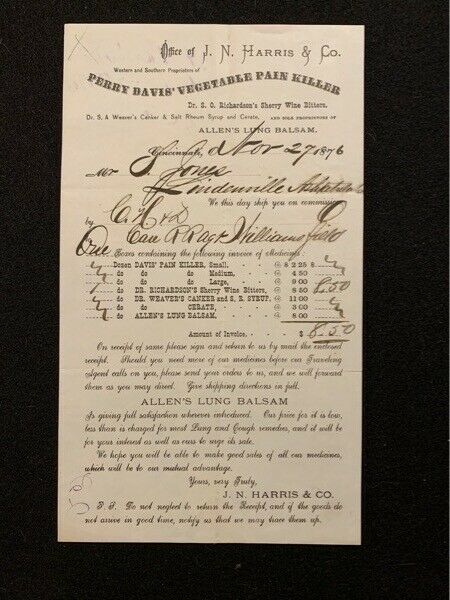 Office of J. N. HARRIS & CO.
Western and Southern Proprietors of
PERRY DAVIS' VEGETABLE PAIN KILLER
Dr. S. O. Richardson's Sherry Wine Bitters,
Dr. S. A Weaver's Canker & Salt Rheum Syrup and Cerate, AND SOLE PROPRIETORS OF
ALLEN'S LUNG BALSAM.
Cincinnati, Nov 27 1876
Mr J. Jones
Lindenville Ashtabula Co
We this day ship you on commission
by C. H & D
Care R R agt Williamsfield
One Boxes containing the following invoice of Medicines:
Dozen DAVIS' PAIN KILLER, Small, @ $ 2.25 $
do do do Medium, @ 4.50
do do do Large, @ 9 00
1 do DR. RICHARDSON'S Sherry Wine Bitters, @ 8 50 8.50
do DR. WEAVER'S CANKER and S. R. SYRUP, @ 11 00
do do CERATE, @ 3 00
do ALLEN'S LUNG BALSAM, @ 8 00
Amount of Invoice, $ 8.50
On receipt of same please sign and return to us by mail the enclosed
receipt. Should you need more of our medicines before our Traveling
agent calls on you, please send your orders to us, and we will forward
them as you may direct. Give shipping directions in full.
ALLEN'S LUNG BALSAM
Is giving full satisfaction wherever introduced. Our price for it is low,
less than is charged for most Lung and Cough remedies, and it will be
for your interest as well as ours to urge its sale.
We hope you will be able to make good sales of all our medicines,
which will be to our mutual advantage.
Yours, very Truly,
J. N. HARRIS & CO.
P. S. Do not neglect to return the Receipt, and if the goods do
not arrive in good time, notify us that we may trace them up.